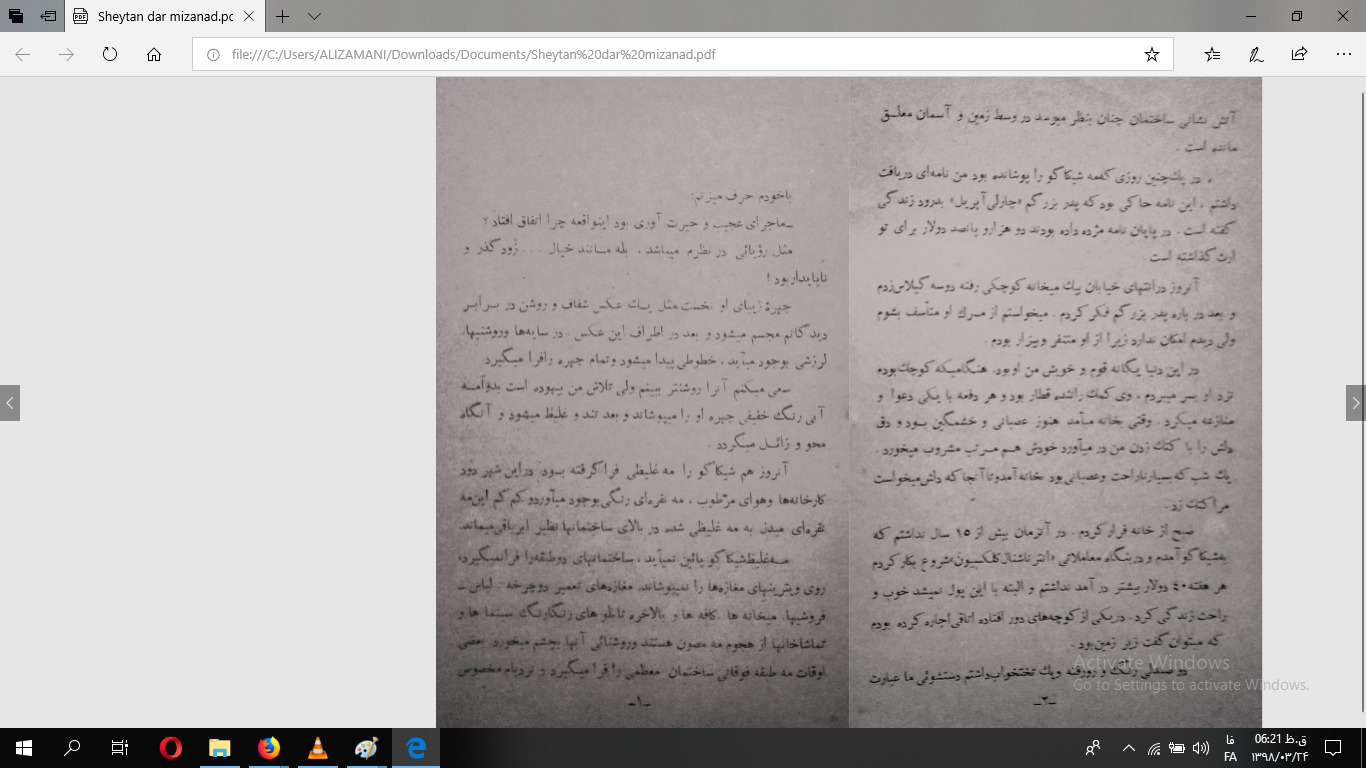 Sheytan dar mizanad.pc
file:///C:/Users/ALIZAMANI/Downloads/Documents/Sheytan%20dar%20mizanad.pdf
باخودم حرف میزنم:
ـماجرای عجیب و حیرت آوری بود اینواقعه چرا اتفاق افتاد ؟
مثل رؤیائی در نظرم میباشد ، بله مانند خیال . . . زود گذر و
ناپایدار بود !
چهرهٔ زیبای او نخست مثل یك عکس شفاف و روشن در برابر
دیدگانم مجسم میشود و بعد در اطراف این عکس . در سایه‌ها وروشنیها،
لرزشی بوجود میآید ، خطوطی پیدا میشود وتمام چهره رافرا میگیرد.
سعی میکنم آنرا روشنتر ببینم ولی تلاش من بیهوده است بدوأمه
آبی رنگ خفیفی چهره او را میپوشاند و بعد تند و غلیظ میشود و آنگاه
محو و زائل میگردد .
آنروز هم شیکاگو را مه غلیظی فراگرفته بود. دراین شهر دود
کارخانه‌ها وهوای مرطوب ، مه نقره‌ای رنگی بوجود میآوردو کم کم این مه
نقره‌ای مبدل به مه غلیظی شده در بالای ساختمانها نظیر ابر باقی میماند.
مه غلیظ شیکاگو پائین نمیآید ، ساختمانهای دوطبقه را فرانمیگیرد،
روی ویترینهای مغازه‌ها را نمیپوشاند. مغازه‌های تعمیر دوچرخه . لباس ـ
فروشیها. میخانه ها . کافه ها و بالاخره تابلو های رنگارنگ سینما ها و
تماشاخانها از هجوم مه مصون هستند وروشنائی آنها بچشم میخورد. بعضی
اوقات مه طبقه فوقانی ساختمان معظمی را فرا میگیرد و نردبام مخصوص
ـ۱ـ
آتش نشانی ساختمان چنان بنظر میرسد در وسط زمین و آسمان معلق
مانده است .
در یك چنین روزی که مه شیکاگو را پوشانده بود من نامه‌ای دریافت
داشتم ، این نامه حاکی بود که پدر بزرگم «چارلی آپریل» بدرود زندگی
گفته است . در پایان نامه مژده داده بودند دو هزارو پانصد دولار برای تو
ارث گذاشته است .
آنروز درانتهای خیابان بیك میخانه کوچکی رفته دوسه گیلاس زدم
و بعد در باره پدر بزرگم فکر کردم . میخواستم از مرك او متأسف بشوم
ولی دیدم امکان ندارد زیرا از او متنفر وبیزار بودم .
در این دنیا یگانه قوم و خویش من او بود. هنگامیکه کوچك بودم
نزد او بسر میبردم ، وی کمك راننده قطار بود و هر دفعه با یکی دعوا و
منازعه میکرد . وقتی بخانه میآمد هنوز عصبانی و خشمگین بود و دق
دلش را با کتك زدن من در میآورد خودش هم مرتب مشروب میخورد .
یك شب که بسیار ناراحت وعصبانی بود بخانه آمدو تا آنجا که دلش میخواست
مرا کتك زد .
صبح از خانه فرار کردم . در آنزمان بیش از ۱۵ سال نداشتم که
به‌شیکاگو آمدم و در بنگاه معاملاتی «انتر ناشنال کلکسیون» شروع بکار کردم
هر هفته ۴۰ دولار بیشتر در آمد نداشتم و البته با این پول نمیشد خوب و
راحت زندگی کرد . دریکی از کوچه‌های دور افتاده اتاقی اجاره کرده بودم
که میتوان گفت زیر زمین بود .
دو صندلی رنگ و رورفته ویك تختخواب داشتم دستشوئی ما عبارت
ـ۲ـ
Activate Windows
Go to Settings to activate Windows.
FA
فا
06:21 ق.ظ
۱۳۹۸/۰۳/۲۴